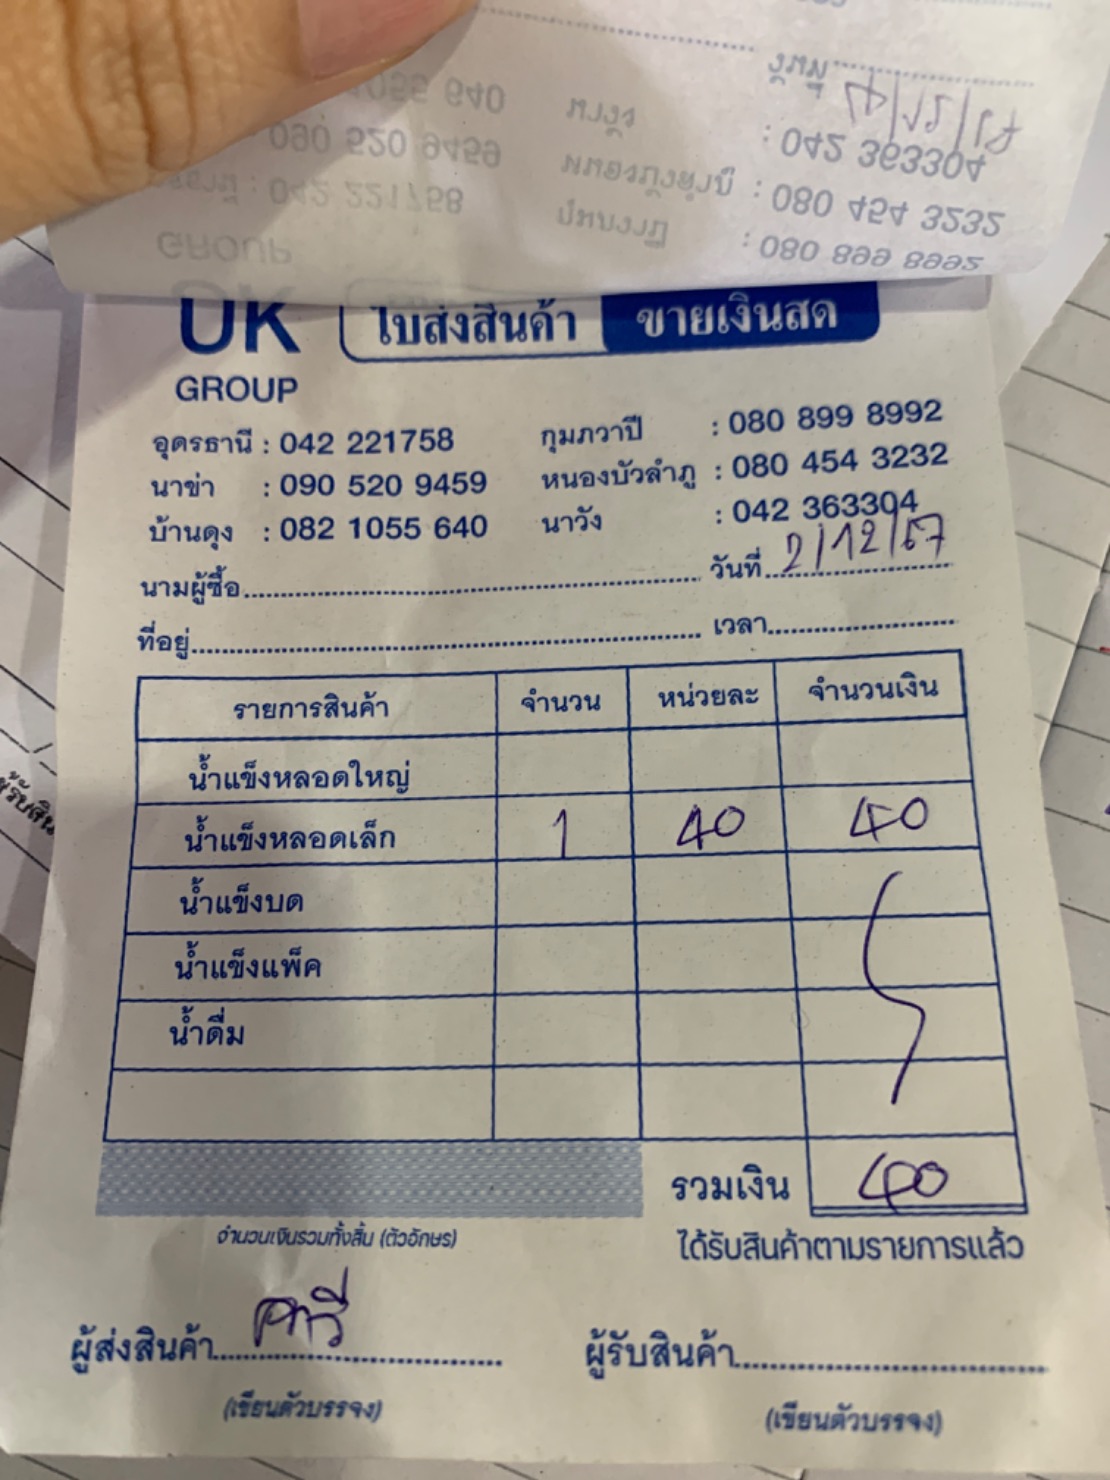 UK
GROUP
ใบส่งสินค้า ขายเงินสด
อุดรธานี : 042 221758 กุมภวาปี : 080 899 8992
นาข่า : 090 520 9459 หนองบัวลำภู : 080 454 3232
บ้านดุง : 082 1055 640 นาวัง : 042 363304
นามผู้ซื้อ วันที่ 2/12/67
ที่อยู่ เวลา
รายการสินค้า จำนวน หน่วยละ จำนวนเงิน
น้ำแข็งหลอดใหญ่
น้ำแข็งหลอดเล็ก 1 40 40
น้ำแข็งบด
น้ำแข็งแพ็ค
น้ำดื่ม
รวมเงิน 40
จำนวนเงินรวมทั้งสิ้น (ตัวอักษร) ได้รับสินค้าตามรายการแล้ว
ผู้ส่งสินค้า ผู้รับสินค้า
(เขียนตัวบรรจง) (เขียนตัวบรรจง)